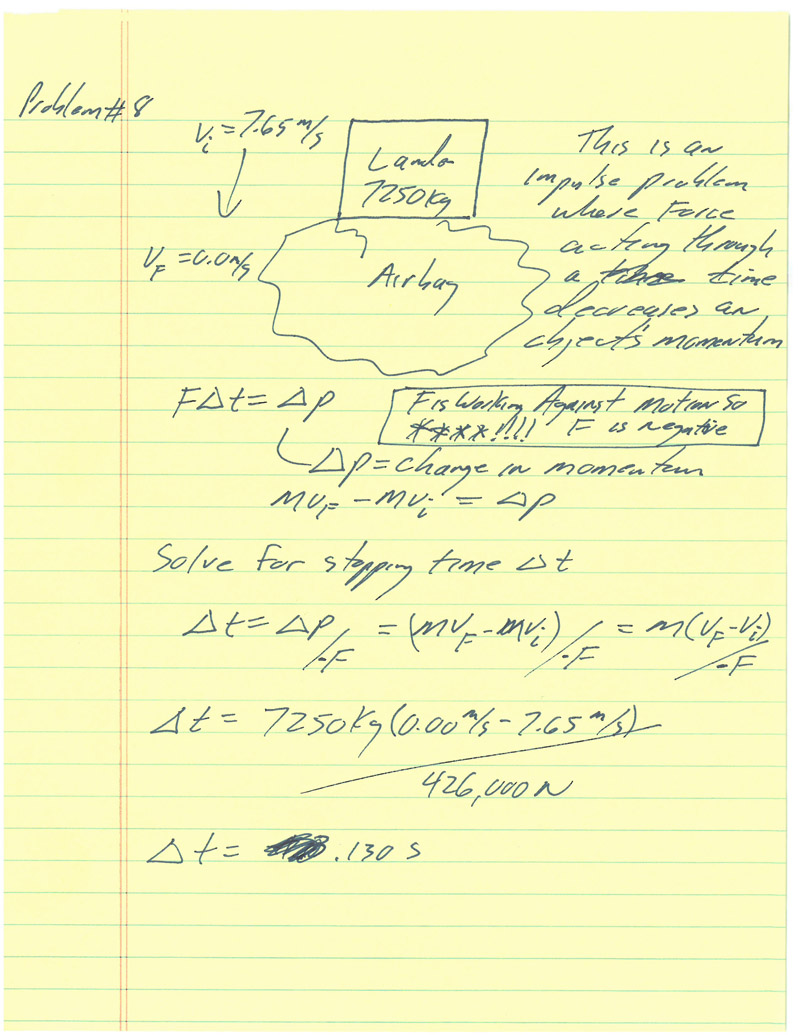 Problem # 8
Vi = 7.65 m/s
VF = 0.0 m/s
Lander
7250Kg
Airbag
This is an
impulse problem
where Force
acting through
a time
decreases an
object's momentum
FΔt = Δp
F is Working Against Motion So
****!!!! F is negative
Δp = change in momentum
MVF - MVi = Δp
Solve For stopping time Δt
Δt = Δp/-F = (MVF - MVi)/-F = M(VF - Vi)/-F
Δt = 7250Kg (0.00 m/s - 7.65 m/s)
426,000N
Δt = .130 S